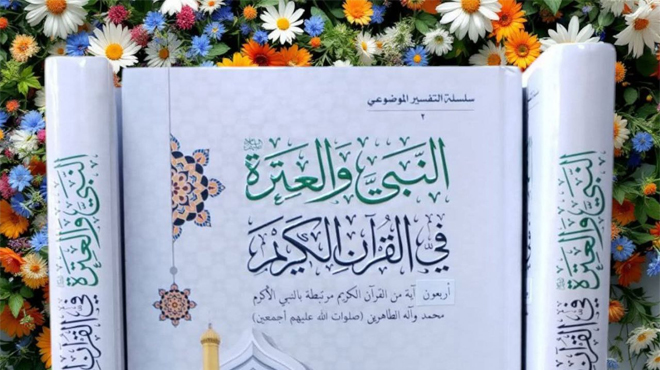 سلسلة التفسير الموضوعي
٢
النَّبيّ وَالعِترَة
في القُرآنِ الكَريم
أربعون آية من القرآن الكريم مرتبطة بالنبي الأكرم
محمد وآله الطاهرين (صلوات الله عليهم أجمعين)
النَّبيّ وَالعِترَة
في القُرآن
النَّبيّ وَالعِترَة
في القُرآن